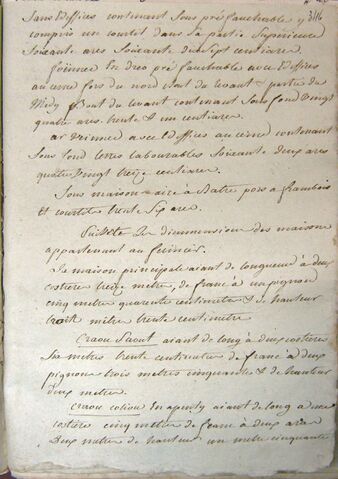 3/16
Sans Ediffices contenant sous pré fauchable y
compris un courtil dans sa partie supérieure
Soixante ares Soixante dix Sept centiare.
foënnec En dreo pré fauchable avec Ediffices
au cerne fors du nord bout du levant & partie du
Midy & bout du levant contenant sous fond vingt
quatre ares trente & un centiare.
ar Drinnec avec Ediffices au cerne contenant
Sous fond terres labourables Soixante deux ares
quatre vingt treize centiare.
Sous maison aire à Batre pors a frambois
Et courtils trente Six are.
Suitte des dimmension des maisons
appartenant au foncier.
La maison principale aiant de longueur à deux
costière treize metre, de franc à un pignon
cinq metre quarente centimetre & de hauteur
trois mètre trente centimètre
Craou Saout aiant de long à deux costieres
Six metres trente centimetre de franc à deux
pignons trois metres cinquante & de hauteur
deux metre.
Craou cotiou En apenty aiant de long à une
costiere cinq metre de franc à deux
Deux metre de hauteur un metre cinquante